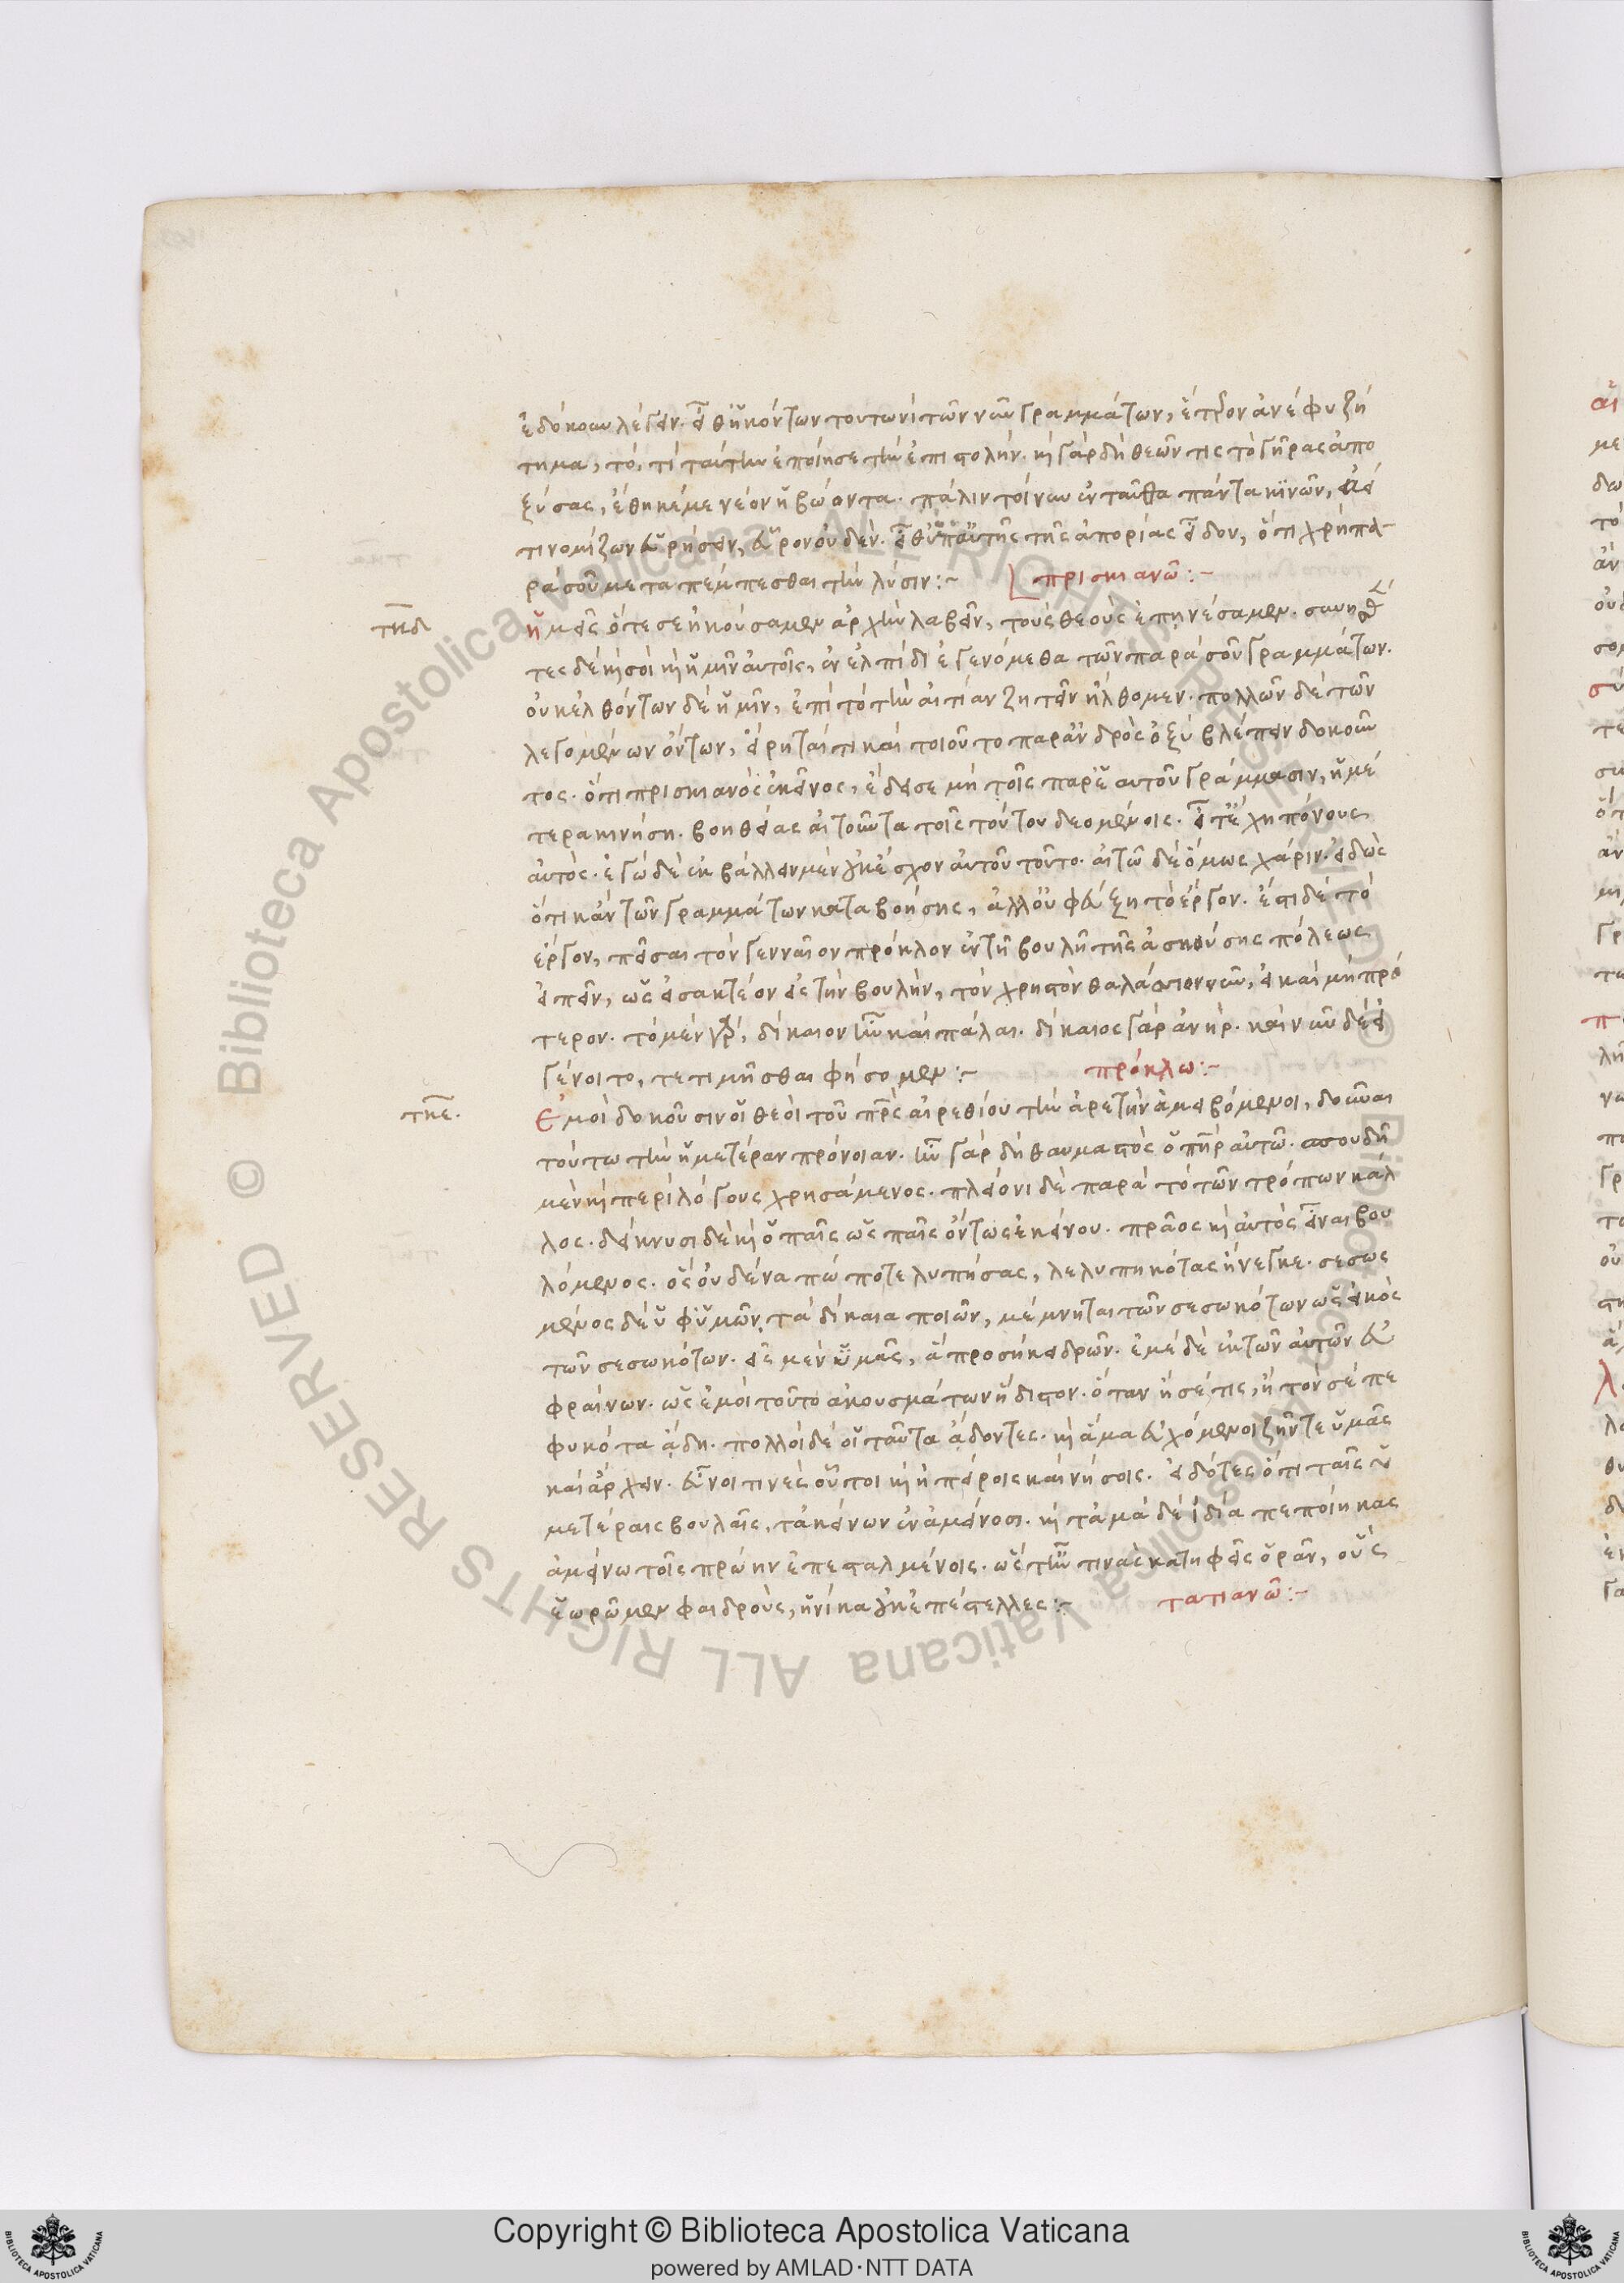 ἐδόκουν λέγειν. εἶθ ἡκόντων τουτωνὶ τῶν νῦν γραμμάτων, ἕτερον ἀνέφυ ζή
τημα, τὸ, τί ταύτην ἐποίησε τὴν ἐπιστολήν. ἦ γὰρ δὴ θεῶν τις τὸ γῆρας ἀπο
ξύσας, ἔθηκέ με νέον ἡβώοντα. πάλιν τοίνυν ἐνταῦθα πάντα κινῶν, ἀεί
τι νομίζων εὑρήσειν, εὗρον οὐδέν. εἶθ ὑπ αὐτῆς τῆς ἀπορίας εἶδον, ὅτι χρὴ πα
ρὰ σοῦ μεταπέμπεσθαι τὴν λύσιν :~ πρισκιανῶ :~
τκδ ἡμεῖς ὅτε σε ἠκούσαμεν ἀρχὴν λαβεῖν, τοὺς θεοὺς ἐπῃνέσαμεν. συνειδό
τες δὲ καὶ σοὶ καὶ ἡμῖν αὐτοῖς, ἐν ἐλπίδι ἐγενόμεθα τῶν παρὰ σοῦ γραμμάτων.
οὐκ ἐλθόντων δὲ ἡμῖν, ἐπὶ τὸ τὴν αἰτίαν ζητεῖν ἤλθομεν. πολλῶν δὲ τῶν
λεγομένων ὄντων, εἴρηταί τι καὶ τοιοῦτο παρ ἀνδρὸς ὀξὺ βλέπειν δοκοῦν
τος. ὅτι πρισκιανὸς ἐκεῖνος, ἔδεισε μὴ τοῖς παρ ἑαυτοῦ γράμμασιν, ἡμέ
τερα κινήση. βοηθείας αἰτοῦντα τοῖς τούτου δεομένοις. εἶτ ἔχη πόνους
αὐτός. ἐγὼ δὲ ἐκβάλλειν μὲν οὐκ ἔσχον αὐτοῦ τοῦτο. αἰτῶ δὲ ὅμως χάριν. εἰδὼς
ὅτι κἂν τῶν γραμμάτων καταβοήσης, ἀλλ οὐ φεύξη τὸ ἔργον. ἔστι δὲ τὸ
ἔργον, πεῖσαι τὸν γενναῖον πρόκλον ἐν τῆ βουλῆ τῆς ἀσκούσης πόλεως
εἰπεῖν, ὡς εἰσακτέον εἰς τὴν βουλὴν, τὸν χρηστὸν θαλάσσιον νῦν, εἰ καὶ μὴ πρό
τερον. τὸ μὲν γὰρ, δίκαιον ἦν καὶ πάλαι. δίκαιος γὰρ ἀνήρ. καὶ νῦν δὲ εἰ
γένοιτο, τετιμῆσθαι φήσομεν :~ πρόκλω :~
τκε. Ἐμοὶ δοκοῦσιν οἱ θεοὶ τοῦ πρὸς αἰρεθίου τὴν ἀρετὴν ἀμειβόμενοι, δοῦναι
τούτω τὴν ἡμετέραν πρόνοιαν. ἦν γὰρ δὴ θαυμαστὸς ὁ πατὴρ αὐτῶ. σπουδῆ
μὲν καὶ περὶ λόγους χρησάμενος. πλείονι δὲ παρὰ τὸ τῶν τρόπων κάλ
λος. δείκνυσι δὲ καὶ ὁ παῖς ὡς παῖς ὄντως ἐκείνου. πρᾶος καὶ αὐτὸς εἶναι βου
λόμενος. ὃς οὐδένα πώποτε λυπήσας, λελυπηκότας ἤνεγκε. σεσως
μένος δὲ ὑφ ὑμῶν τὰ δίκαια ποιῶν, μέμνηται τῶν σεσωκότων ὡς εἰκὸς
τῶν σεσωκότων. εἰς μὲν ὑμᾶς, ἃ προσήκει δρῶν. ἐμὲ δὲ ἐκ τῶν αὐτῶν εὐ
φραίνων. ὡς ἐμοὶ τοῦτο ἀκουσμάτων ἥδιστον. ὅταν ἢ σέ τις, ἢ τὸν σὲ πε
φυκότα ἄδη. πολλοὶ δὲ οἱ ταῦτα ἄδοντες. καὶ ἅμα εὐχόμενοι ζῆν τε ὑμᾶς
καὶ ἄρχειν. εὖνοί τινες οὗτοι καὶ ἠπείροις καὶ νήσοις. εἰδότες ὅτι ταῖς ὑ
μετέραις βουλαῖς, τἀκείνων ἐν ἀμείνοσι. καὶ τἀμὰ δὲ ἰδία πεποίηκας
ἀμείνω τοῖς πρώην ἐπεσταλμένοις. ὥστ ἦν τινας κατηφεῖς ὁρᾶν, οὓς
ἑωρῶμεν φαιδροὺς, ἡνίκα οὐκ ἐπέστελλες :~ τατιανῶ :~
Copyright © Biblioteca Apostolica Vaticana
powered by AMLAD·NTT DATA